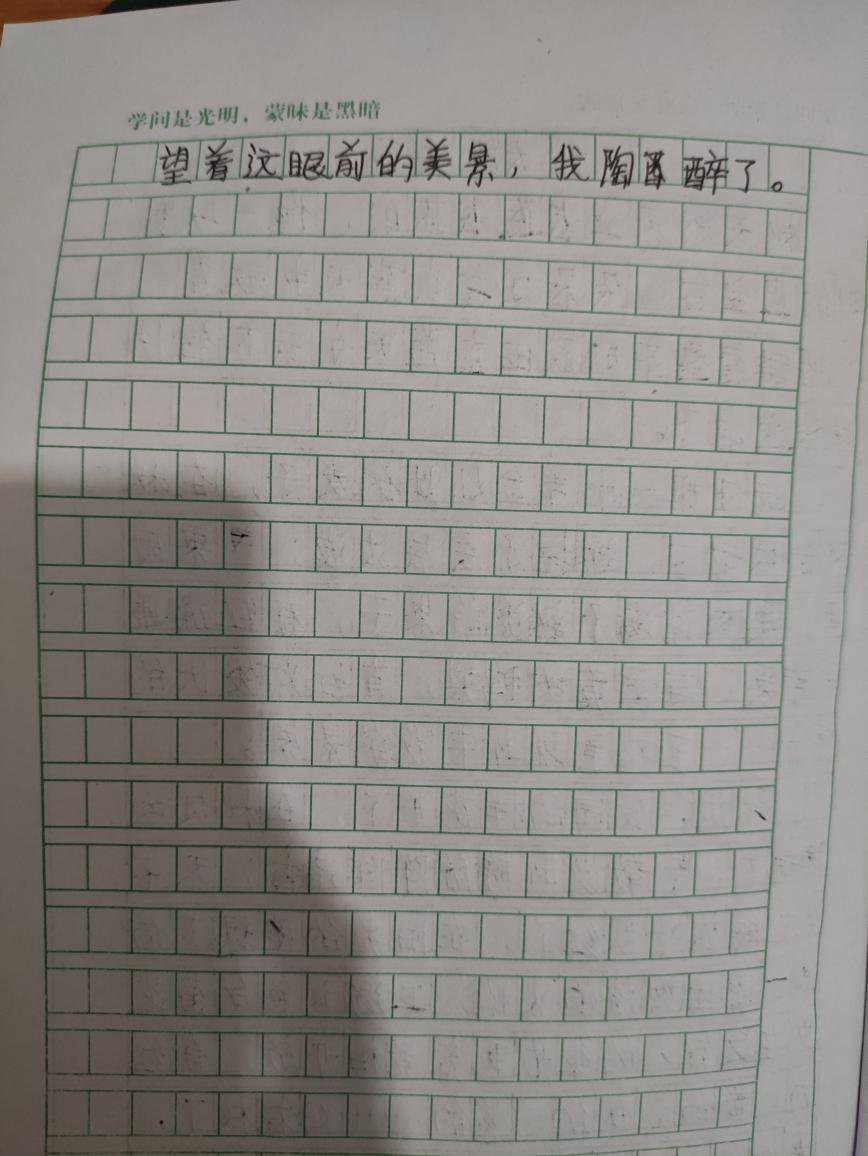 学问是光明，蒙昧是黑暗
望着这眼前的美景，我陶酉醉了。